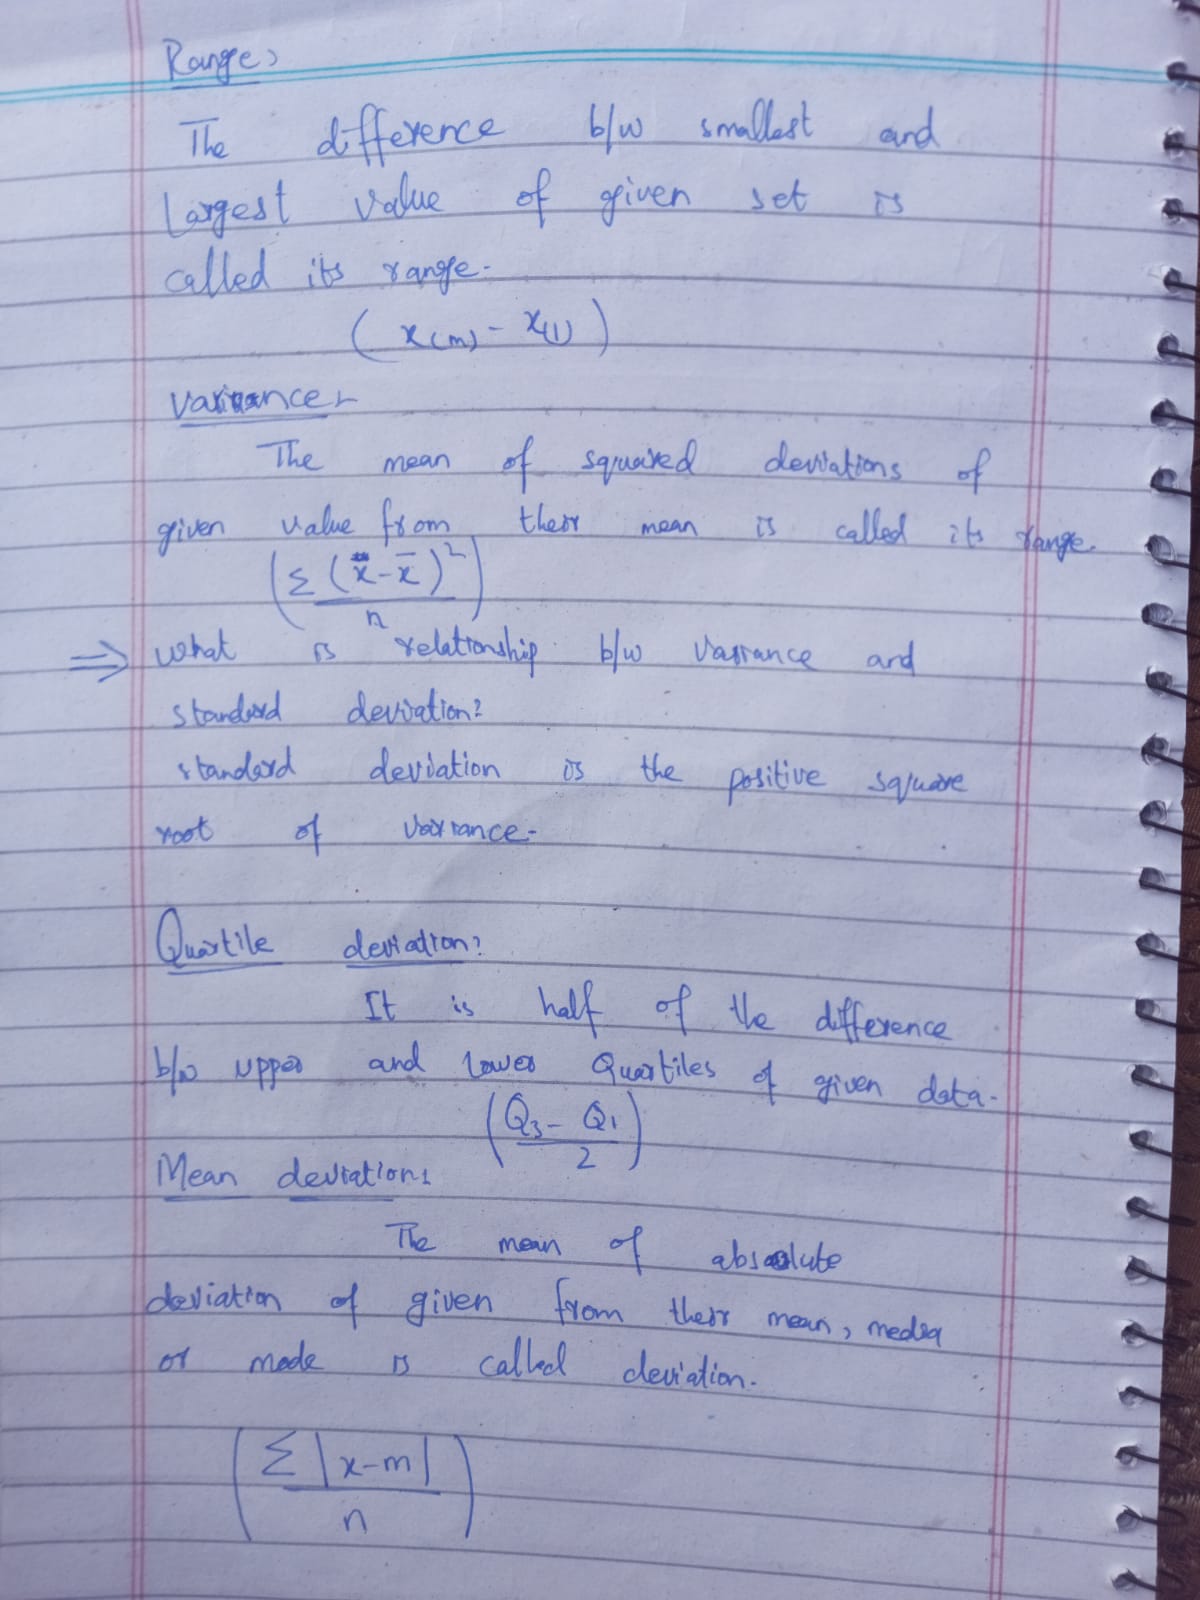 Range:
The difference b/w smallest and
Largest value of given set is
called its range.
(x(m) - x(1))
Variance:
The mean of squared deviations of
given value from their mean is called its range.
(Σ(x - x̄)²/n)
⇒ what is relationship b/w variance and
standard deviation?
standard deviation is the positive square
root of variance.
Quartile deviation:
It is half of the difference
b/w upper and lower Quartiles of given data.
(Q₃ - Q₁/2)
Mean deviation:
The mean of absolute
deviation of given from their mean, media
or mode is called deviation.
(Σ|x-m|/n)